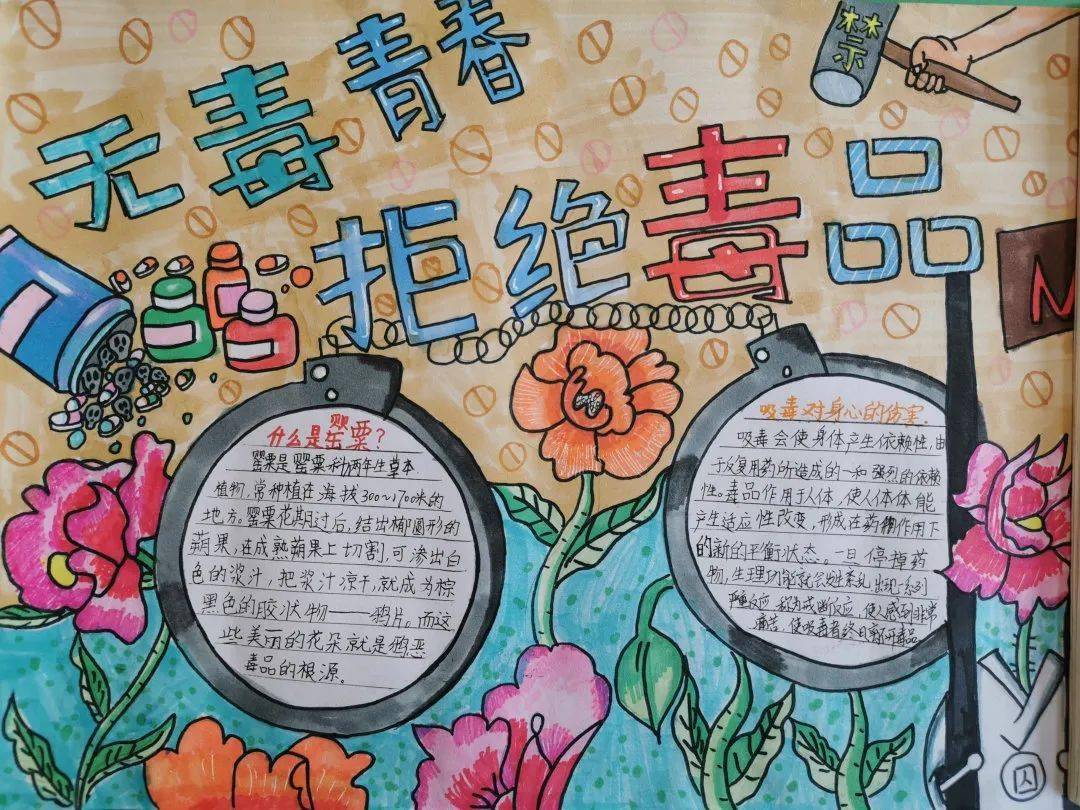 禁
无毒青春
拒绝毒品
M
什么是罂粟?
罂粟是罂粟科两年生草本
植物,常种植在海拔300~1700米的
地方。罂粟花期过后,结出椭圆形的
蒴果,在成熟蒴果上切割,可渗出白
色的浆汁,把浆汁凉干,就成为棕
黑色的胶状物——鸦片。而这
些美丽的花朵就是邪恶
毒品的根源。
吸毒对身心的伤害.
吸毒会使身体产生依赖性,由
于反复用药所造成的一种强烈的依赖
性。毒品作用于人体,使人体体能
产生适应性改变,形成在药物作用下
的新的平衡状态。一旦停掉药
物,生理功能就会发生紊乱,出现一系列
严重反应,称为戒断反应,使人感到非常
痛苦,使吸毒者终日离不开毒品
囚